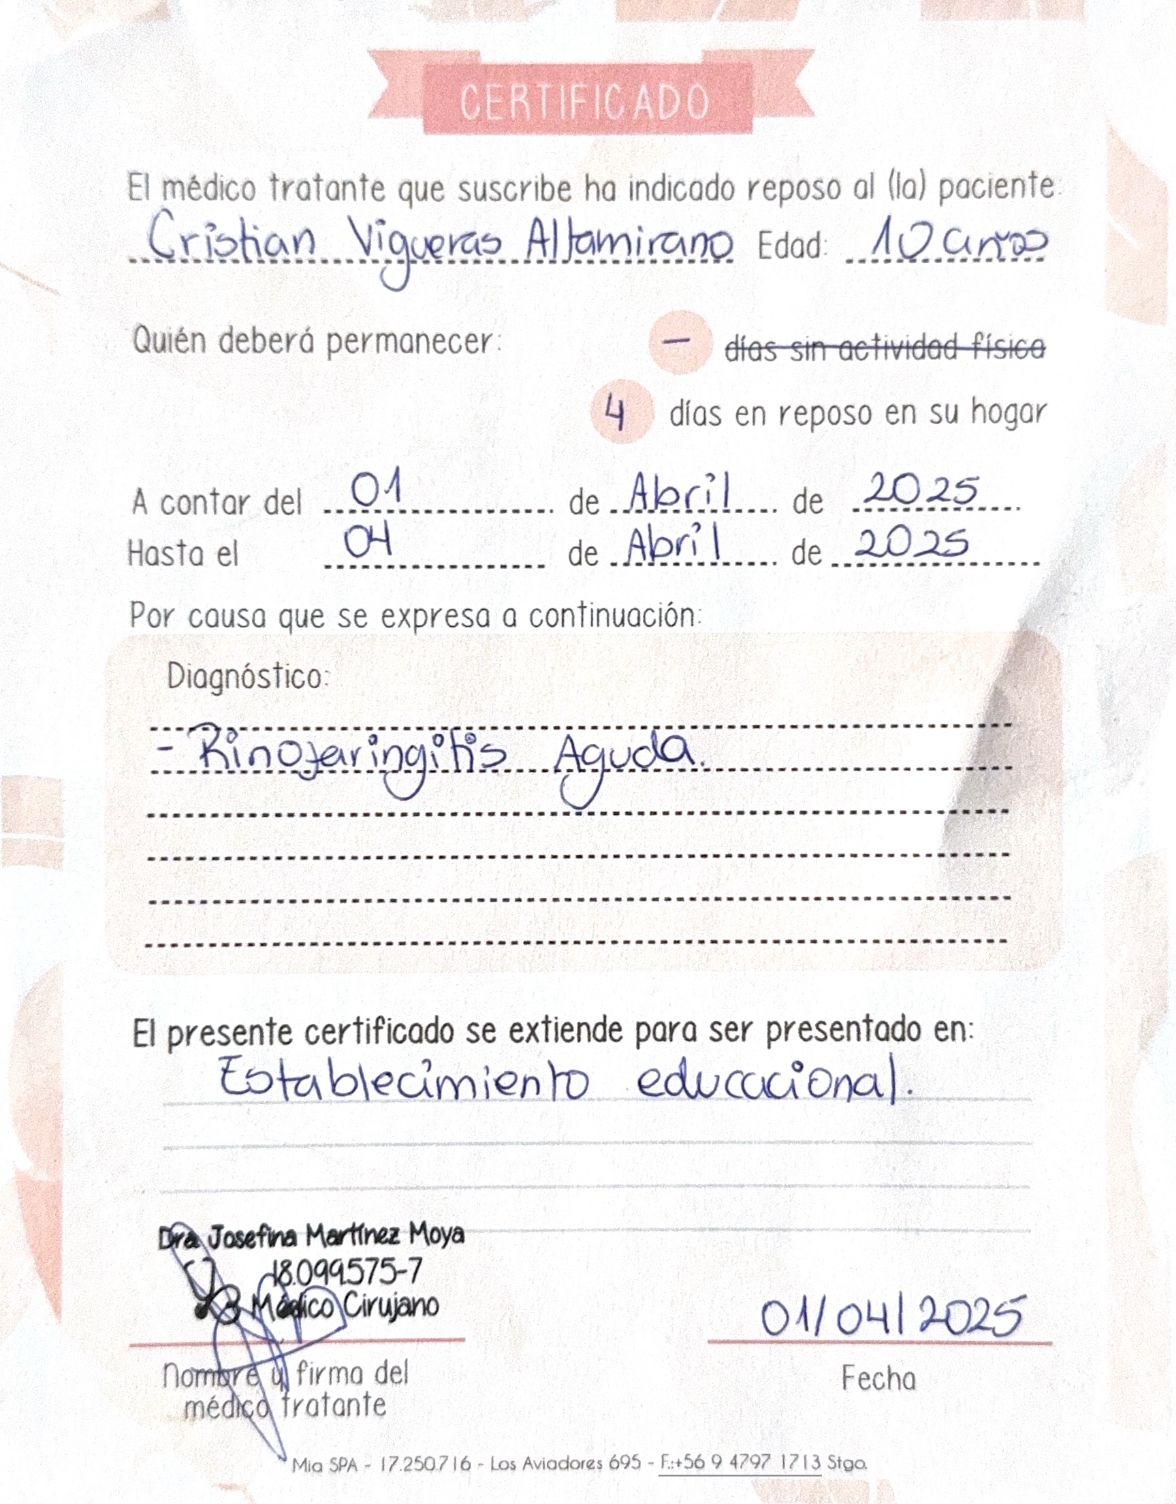 CERTIFICADO
El médico tratante que suscribe ha indicado reposo al (la) paciente:
Cristian Vigueras Altamirano Edad: 10 años
Quién deberá permanecer: - días sin actividad física
4 días en reposo en su hogar
A contar del 01 de Abril de 2025
Hasta el 04 de Abril de 2025
Por causa que se expresa a continuación:
Diagnóstico:
- Rinofaringitis Aguda.
El presente certificado se extiende para ser presentado en:
Establecimiento educacional.
Dra Josefina Martínez Moya
18.099.575-7
Médico Cirujano
01/04/2025
Nombre y firma del
médico tratante
Fecha
Mia SPA - 17.250.716 - Los Aviadores 695 - F.:+56 9 4797 1713 Stgo.